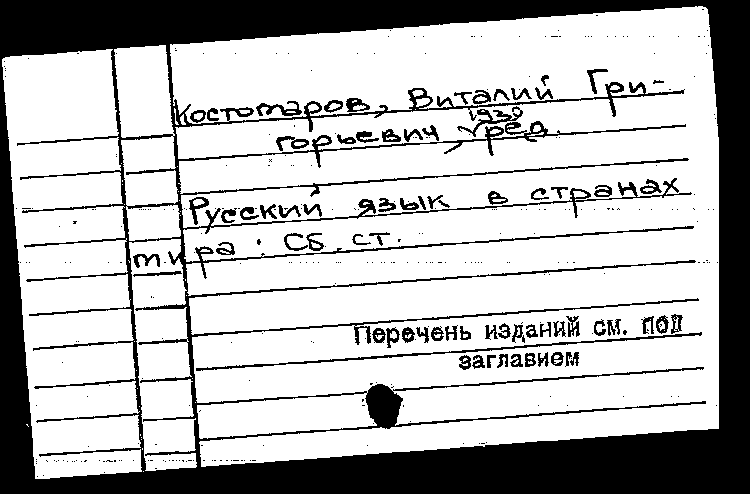 Костомаров, Виталий Гри-
горьевич, 1930 ред.
Русский язык в странах
мира : Сб. ст.
Перечень изданий см. под
заглавием